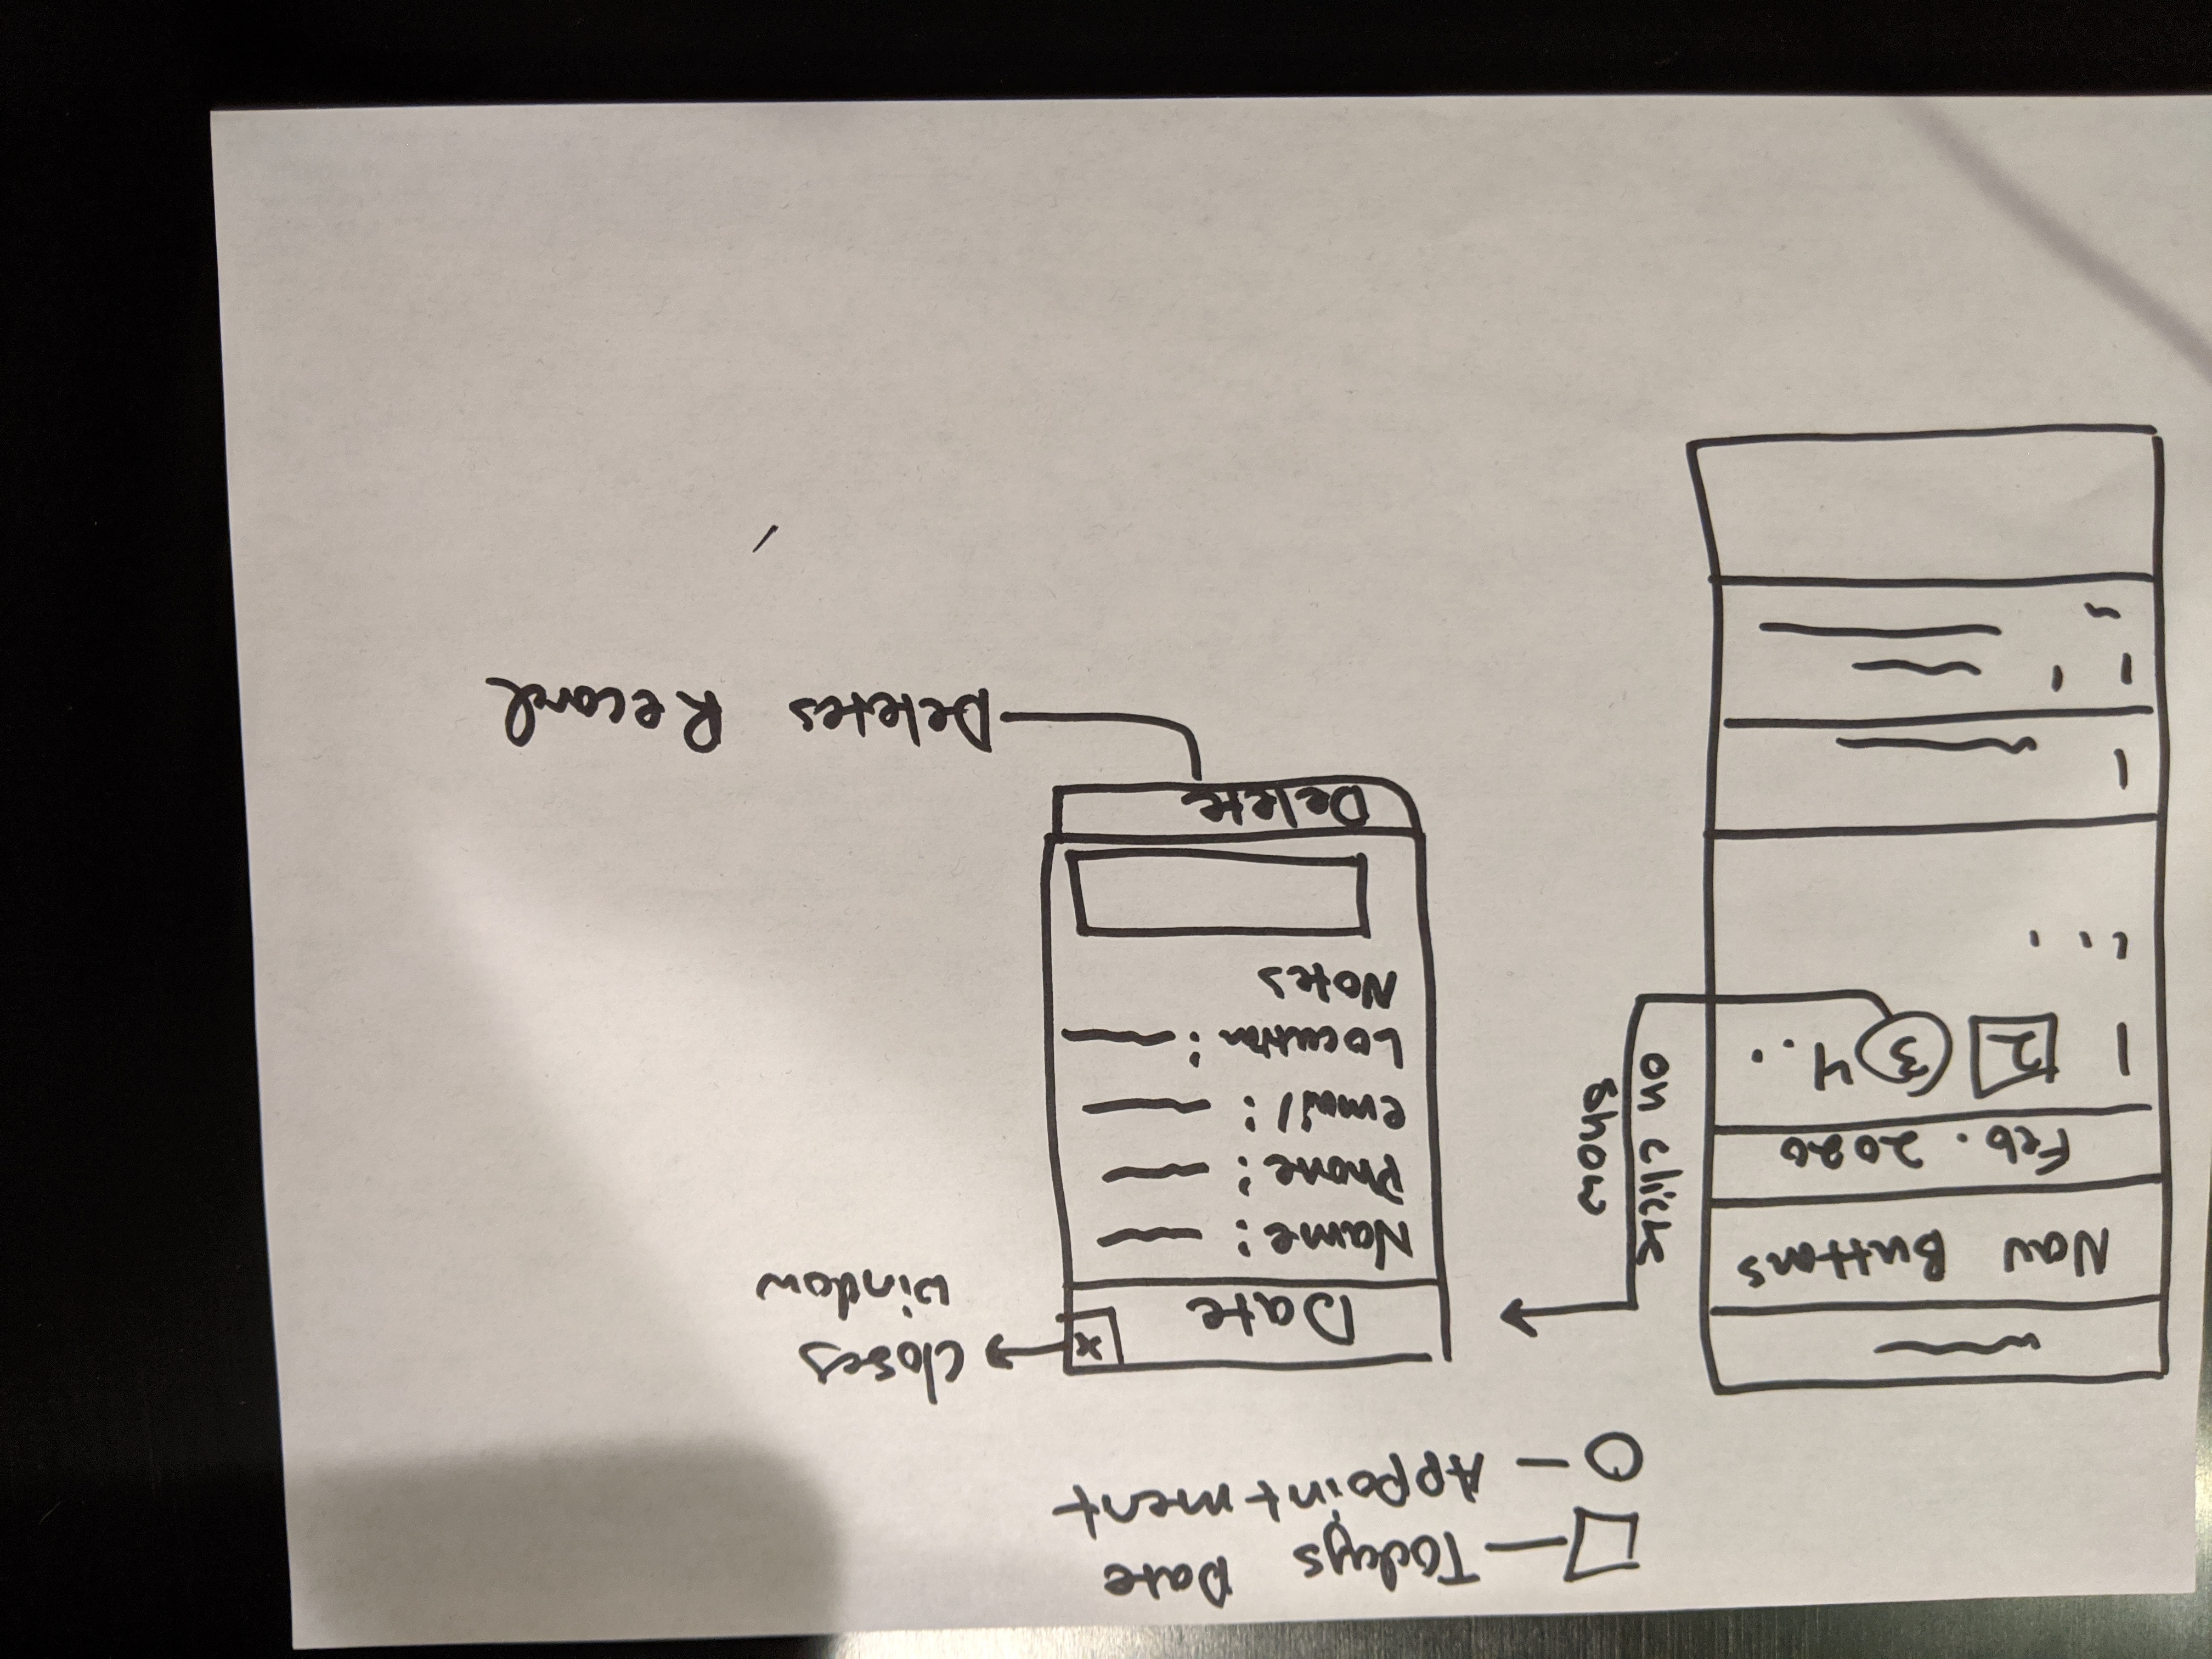 Todays Date
Appointment
Nav Buttons
Feb. 2020
1 2 3 4 . .
on click
show
Date x
closes
window
Name:
Phone:
email:
Location:
Notes
Delete
Deletes Record